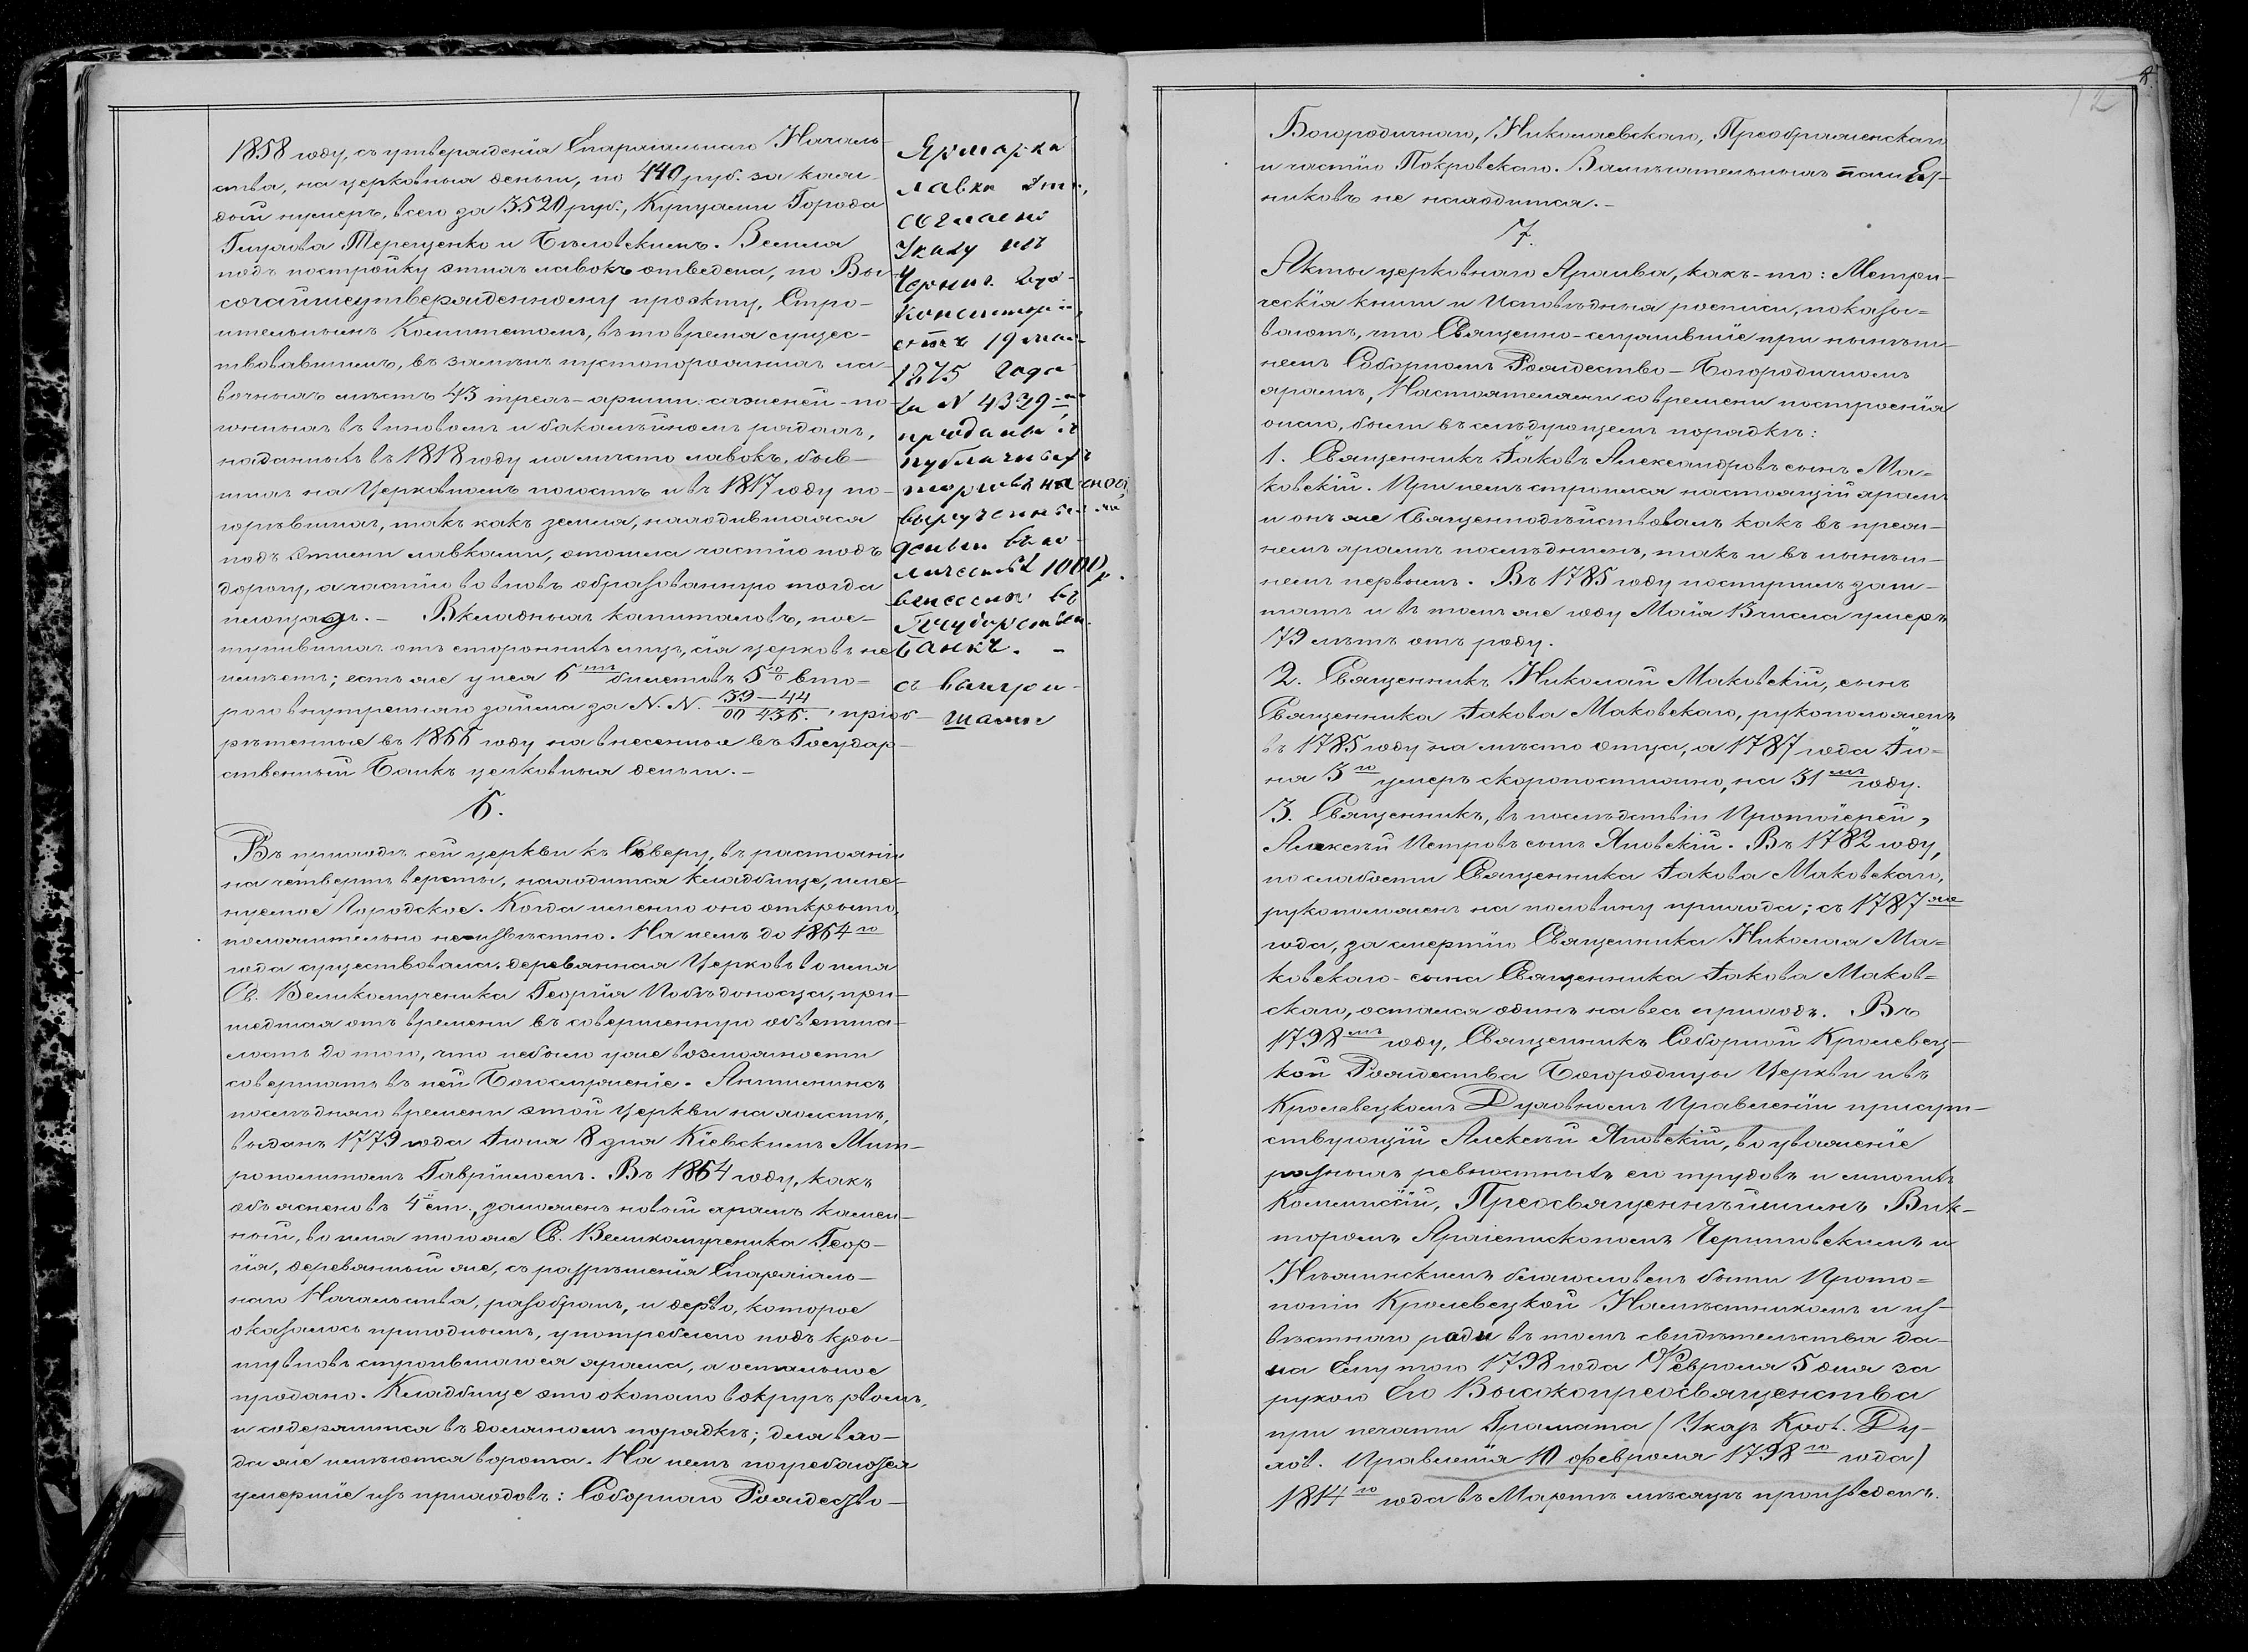 1858 году, съ утвержденія Епархіальнаго Началь-
ства, на церковныя деньги, по 440 руб. за каж-
дый нумеръ, всего за 3520 руб., Купцами Города
Глухова Терещенко и Бѣловскимъ. Земля
подъ постройку этихъ лавокъ отведена, по Вы-
сочайшеутвержденному проэкту, Строи-
тельнымъ Комитетомъ, въ то время сущес-
твовавшимъ, въ замѣнъ пустопорожнихъ ла-
вочныхъ мѣстъ 43 трехъ-аршин: саженей - по-
гонныхъ въ винновомъ и бакалѣйномъ рядахъ,
наданныхъ въ 1818 году на мѣсто лавокъ, быв-
шихъ на Церковномъ погостѣ и въ 1817 году по-
горѣвшихъ, такъ какъ земля, находившаяся
подъ этими лавками, отошла частію подъ
дорогу, а частію во вновь образованную тогда
площадь. — Вкладныхъ капиталовъ, пос-
тупившихъ отъ стороннихъ лицъ, сія церковь не
имѣетъ; есть же у нея 6ть билетовъ 5% вто-
раго внутренняго займа за N. N. 39—44 / 00 436., пріоб-
рѣтенные въ 1866 году на внесенныя въ Государ-
ственный Банкъ церковныя деньги. —
6.
Въ приходѣ сей церкви къ Сѣверу, въ растояніи
на четверть версты, находится кладбище, име-
нуемое Городское. Когда именно оно открыто,
положительно неизвѣстно. На немъ до 1864го
года существовала деревянная Церковь во имя
Св. Великомученика Георгія Побѣдоносца, при-
шедшая отъ времени въ совершенную обветша-
лость до того, что небыло уже возможности
совершать въ ней Богослуженіе. Антиминсъ
послѣдняго времени этой Церкви на холстѣ,
выданъ 1779 года Іюня 8 дня Кіевскимъ Мит-
рополитомъ Гавріиломъ. Въ 1864 году, какъ
объяснено въ 4й ст., заложенъ новый храмъ камен-
ный, во имя того же Св. Великомученика Геор-
гія, деревянный же, съ разрѣшенія Епархіаль-
наго Начальства, разобранъ, и дерево, которое
оказалось пригоднымъ, употреблено подъ кры-
шу вновь строившагося храма, а остальное
продано. Кладбище это окопано вокругъ рвомъ,
и содержится въ должномъ порядкѣ; для вхо-
да же имѣются ворота. На немъ погребаются
умершіе изъ приходовъ: Соборнаго Рождество-
Ярмарка
лавки эти,
согласно
Указу изъ
Черниг. Дух.
Консисторіи,
отъ 19 мая
1875 года
за N 4339м
проданы съ
публичныхъ
торговъ на сносъ,
вырученныя же
деньги въ ко-
личествѣ 1000 р.
внесены въ
Государствен.
Банкъ. —
съ выигры-
шами
Богородичнаго, Николаевскаго, Преображенскаго
и частію Покровскаго. Замѣчательныхъ памят-
никовъ не находится. —
7.
Акты церковнаго Архива, какъ-то: Метри-
ческія книги и Исповѣдныя росписи, показы-
ваютъ, что Священно-служившіе при нынѣш-
немъ Соборномъ Рождество-Богородичномъ
храмѣ, Настоятелями со времени построенія
онаго, были въ слѣдующемъ порядкѣ:
1. Священникъ Іаковъ Александровъ сынъ Ма-
ковскій. При немъ строился настоящій храмъ
и онъ же Священнодѣйствовалъ какъ въ преж-
немъ храмѣ послѣднимъ, такъ и въ нынѣш-
немъ первымъ. Въ 1785 году поступилъ заш-
татъ и въ томъ же году Маія 13 числа умеръ
79 лѣтъ отъ роду.
2. Священникъ Николай Маковскій, сынъ
Священника Іакова Маковскаго, рукоположенъ
въ 1785 году на мѣсто отца, а 1787 года Ію-
ня 3го умеръ скоропостижно, на 31мъ году.
3. Священникъ, въ послѣдствіи Протоіерей,
Алексѣй Петровъ сынъ Яновскій. Въ 1782 году,
по слабости Священника Іакова Маковскаго,
рукоположенъ на половину прихода; съ 1787же
года, за смертію Священника Николая Ма-
ковскаго - сына Священника Іакова Маков-
скаго, остался одинъ на весь приходъ. Въ
1798мъ году, Священникъ Соборной Кролевец-
кой Рождества Богородицы Церкви и въ
Кролевецкомъ Духовномъ Правленіи присут-
ствующій Алексѣй Яновскій, во уваженіе
разныхъ ревностныхъ его трудовъ и многихъ
Коммиссій, Преосвященнѣйшимъ Вик-
торомъ Архіепископомъ Черниговскимъ и
Нѣжинскимъ благословенъ быти Прото-
попіи Кролевецкой Намѣстникомъ и из-
вѣстнаго ради въ томъ свидѣтельства да-
на Ему того 1798 года Февраля 5 дня за
рукою Его Высокопреосвященства
при печати Грамата / Указъ Крол. Ду-
хов. Правленія 10 февраля 1798го года /
1814го года въ Мартѣ мѣсяцѣ произведенъ